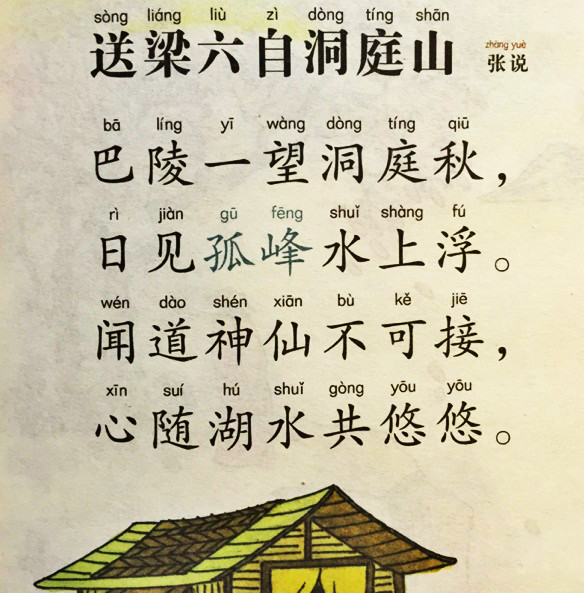 sòng liáng liù zì dòng tíng shān
送梁六自洞庭山
zhāng yuè
张说
bā líng yī wàng dòng tíng qiū
巴陵一望洞庭秋，
rì jiàn gū fēng shuǐ shàng fú
日见孤峰水上浮。
wén dào shén xiān bù kě jiē
闻道神仙不可接，
xīn suí hú shuǐ gòng yōu yōu
心随湖水共悠悠。